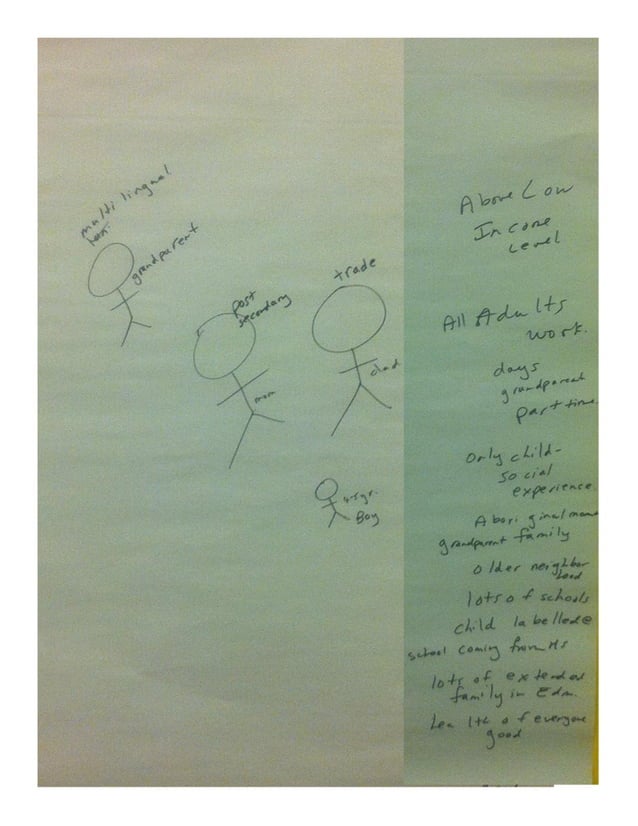 multi lingual
grandparent
post
secondary
mom
trade
dad
4-5yr.
Boy
Above Low
Income
Level
All Adults
work.
days
grandparent
part time
only child-
social
experience
Aboriginal mom
grandparent family
older neighbor
hood
lots of schools
child labelled @
school coming from HS
lots of extended
family in Edm.
Health of everyone
good